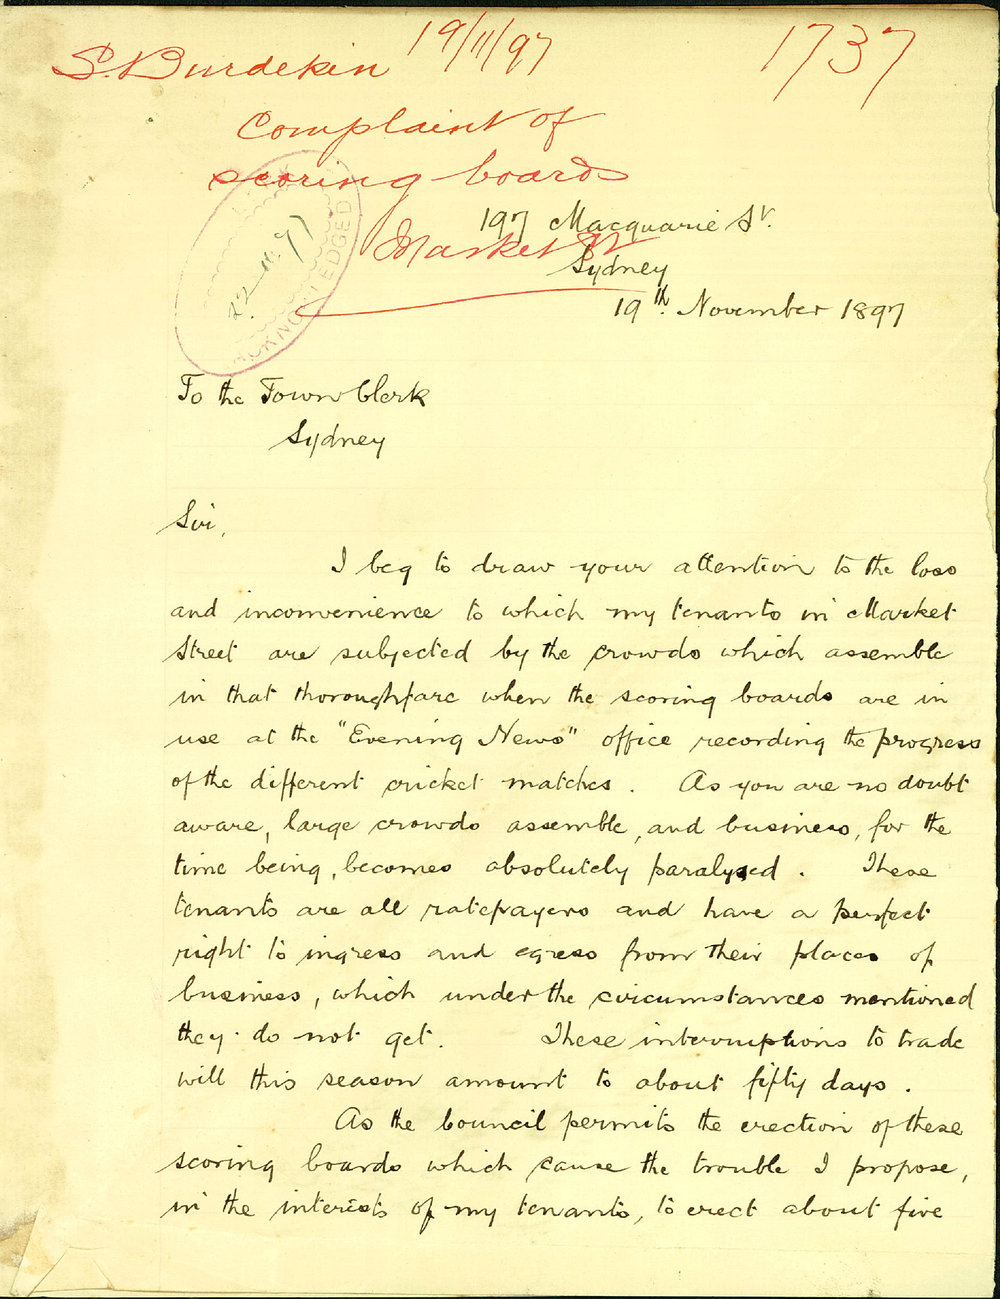 S. Burdekin 19/11/97 1737
Complaint of
scoring boards
Market St
197 Macquarie St.
Sydney
19th November 1897
22.11.97
ACKNOWLEDGED
To the Town Clerk
Sydney
Sir,
I beg to draw your attention to the loss
and inconvenience to which my tenants in Market
Street are subjected by the crowds which assemble
in that thoroughfare when the scoring boards are in
use at the "Evening News" office recording the progress
of the different cricket matches. As you are no doubt
aware, large crowds assemble, and business, for the
time being, becomes absolutely paralysed. These
tenants are all ratepayers and have a perfect
right to ingress and egress from their places of
business, which under the circumstances mentioned
they do not get. These interruptions to trade
will this season amount to about fifty days.
As the Council permits the erection of these
scoring boards which cause the trouble I propose,
in the interests of my tenants, to erect about five